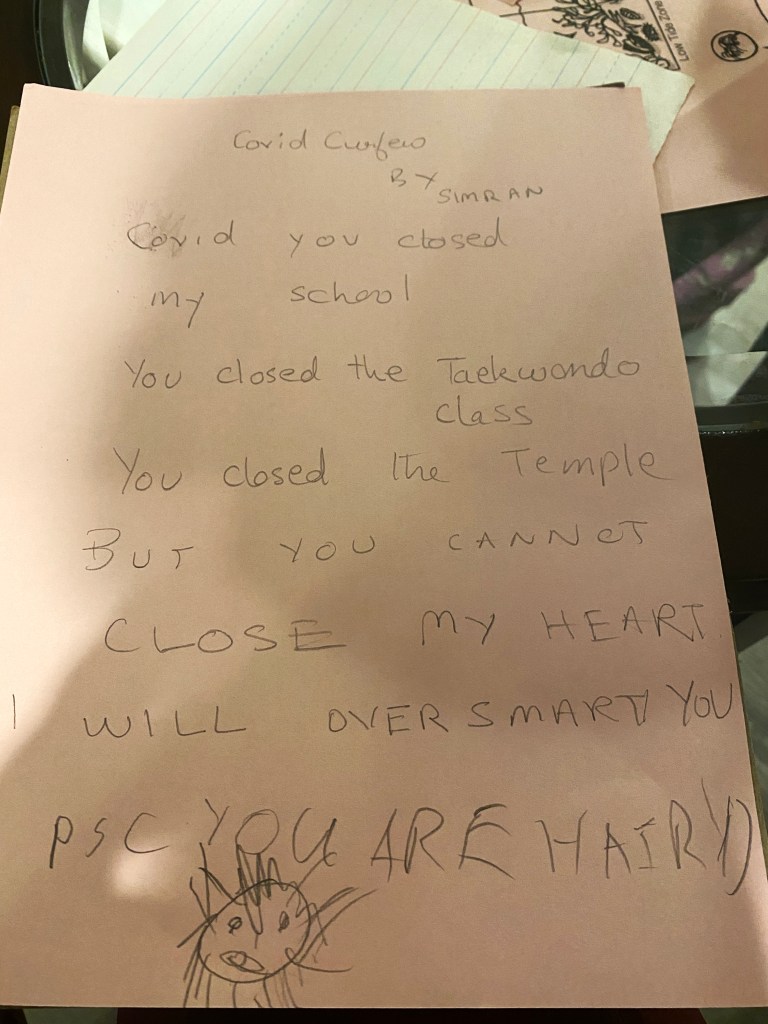 Low Tide Zone
Covid Curfew
BY
SIMRAN
Covid you closed
my school
You closed the Taekwondo
class
You closed the Temple
BUT YOU CANNOT
CLOSE MY HEART.
I WILL OVER SMART YOU
PS( YOU ARE HAIRY)